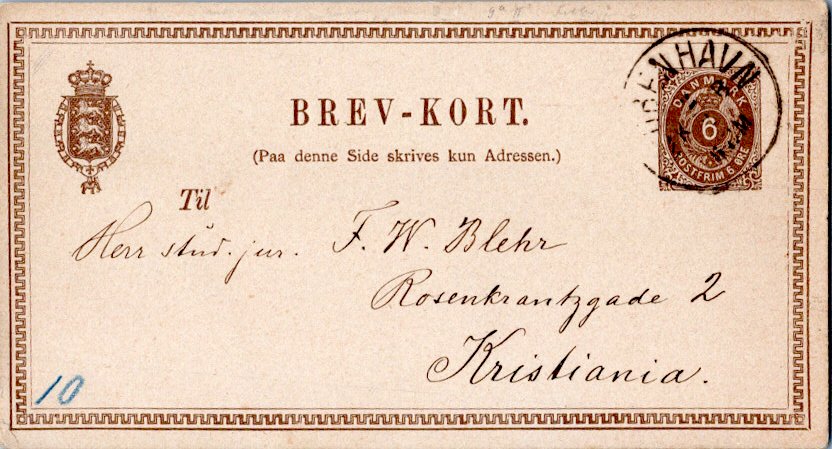 BREV-KORT.
(Paa denne Side skrives kun Adressen.)
KJØBENHAVN
DANMARK
6
POSTFRIM 6 ØRE
Til
Herr stud. jur. F. W. Blehr
Rosenkrantzgade 2
Kristiania.
10